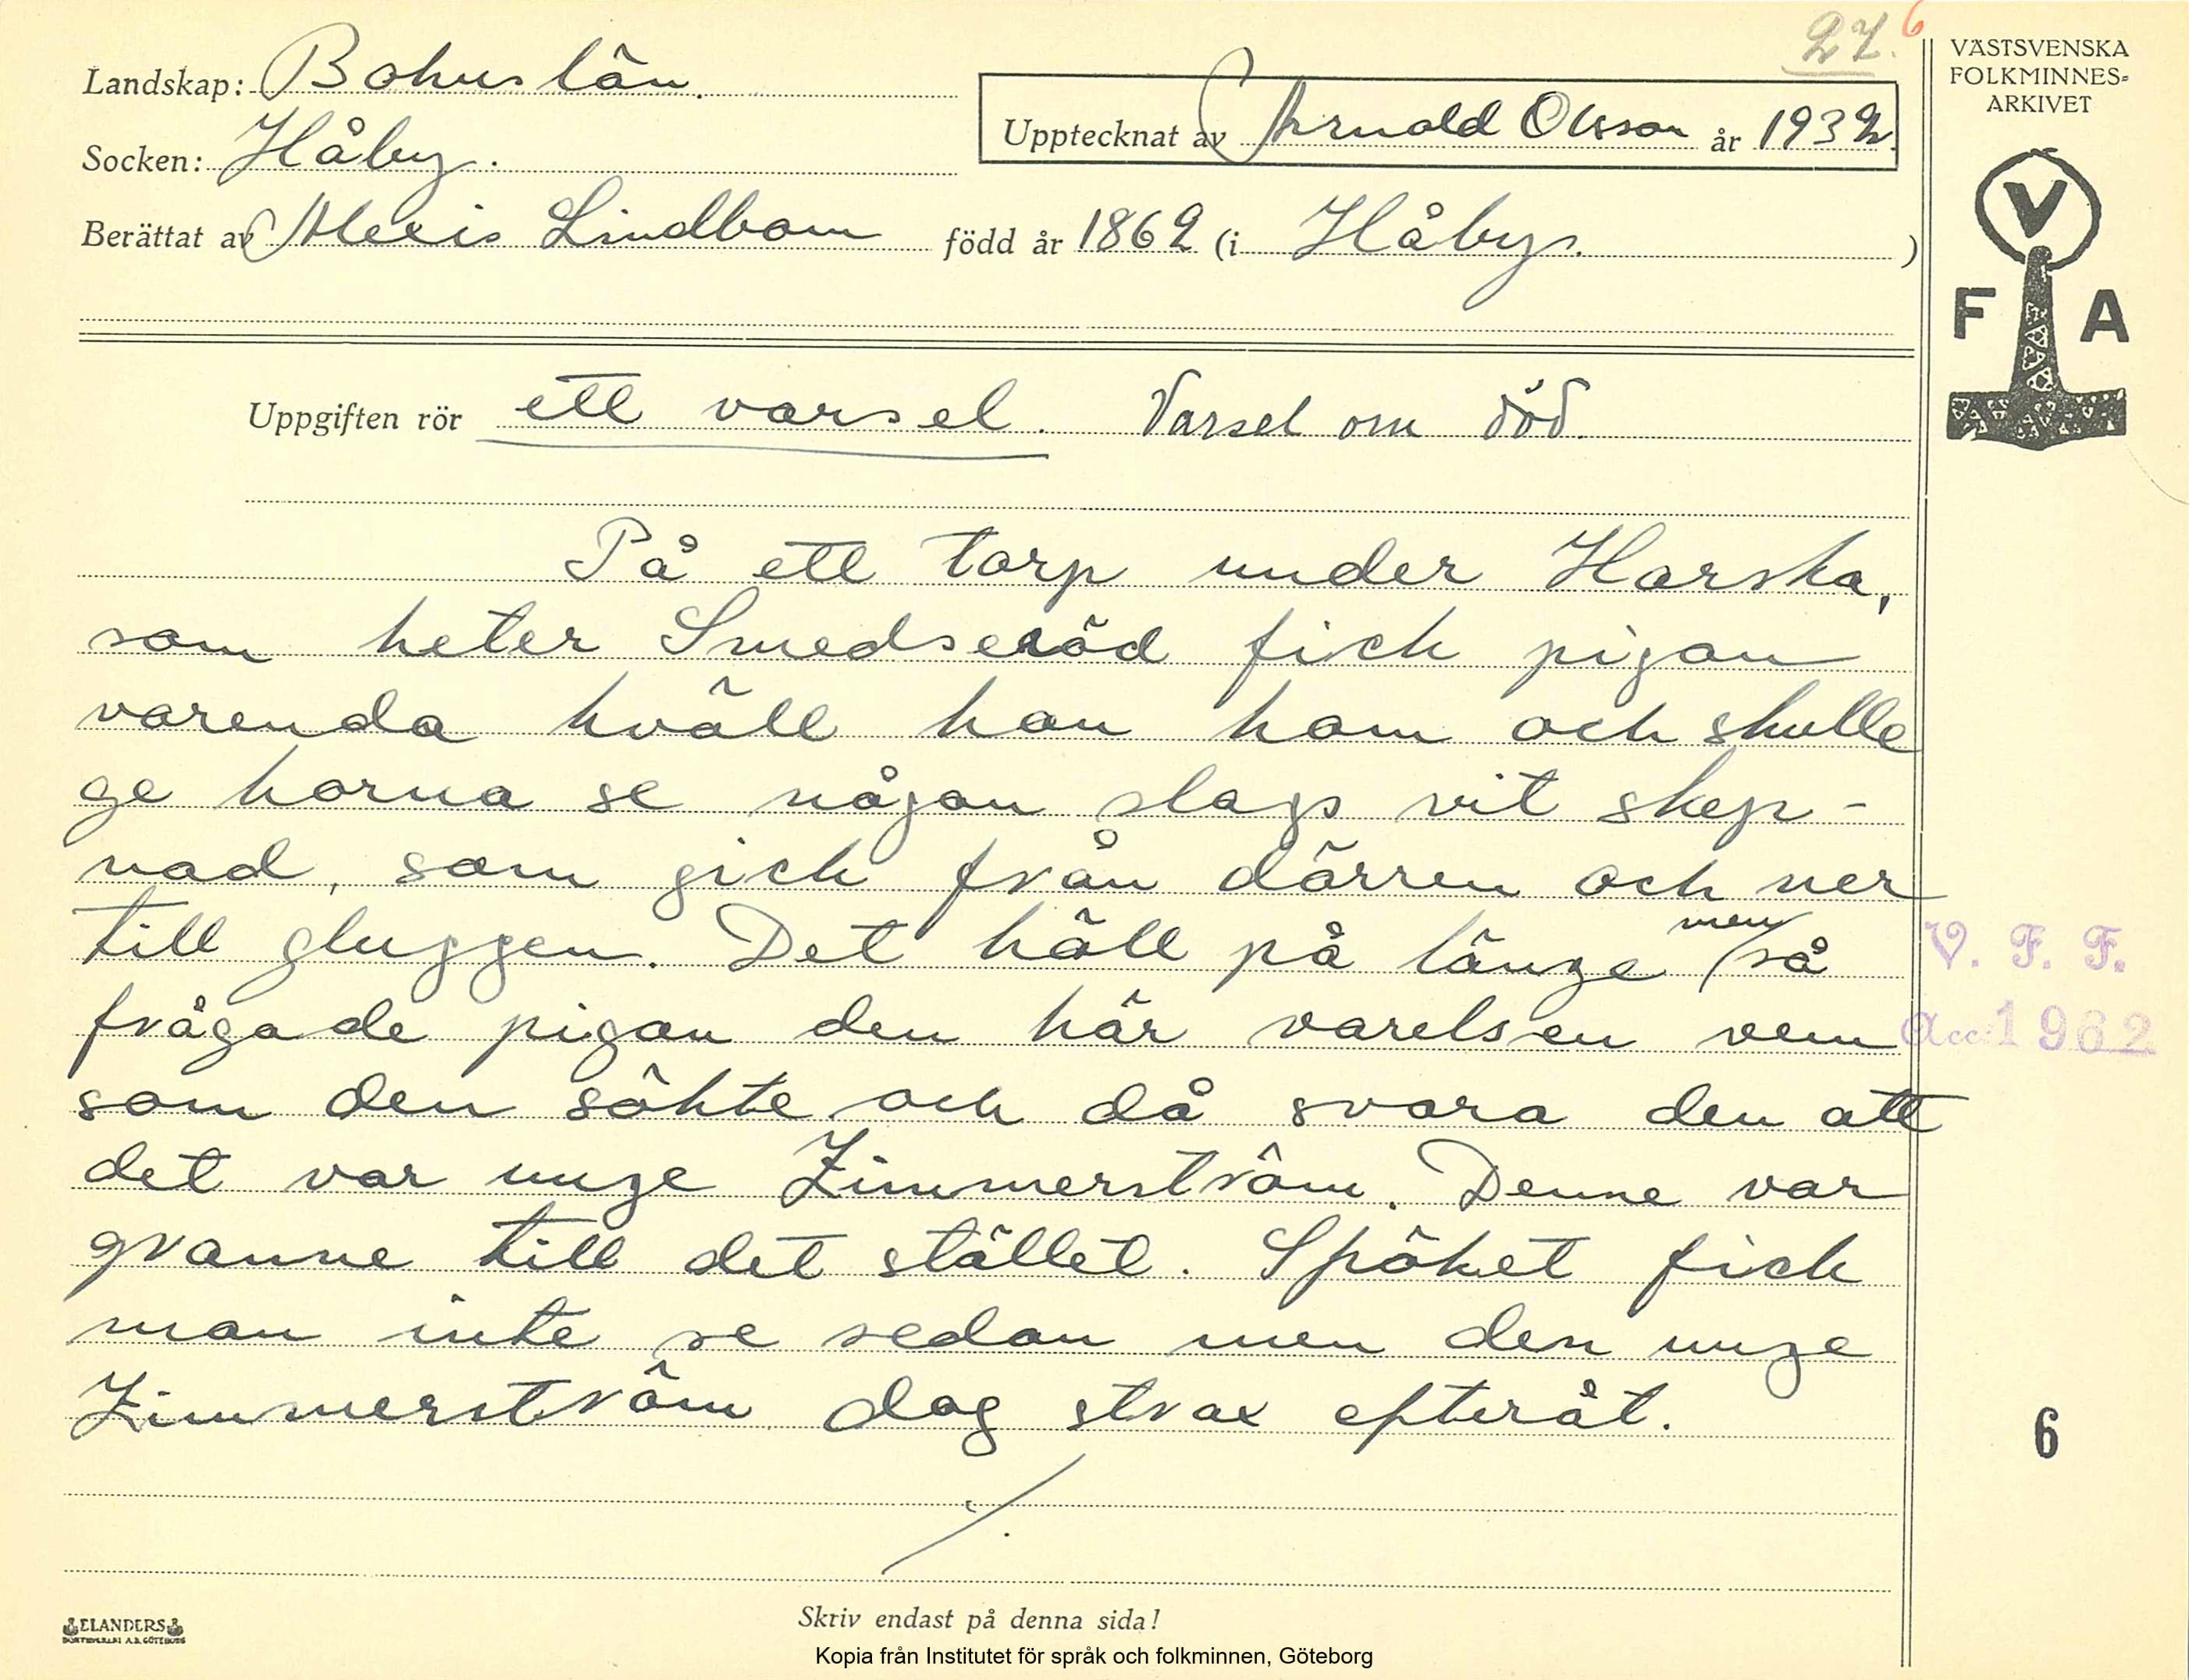 27. 6
Landskap: Bohuslän.
Upptecknat av Arnold Olsson år 1932
Socken: Håby.
Berättat av Alexis Lindbom född år 1862 (i Håby. )
VÄSTSVENSKA
FOLKMINNES-
ARKIVET
V
F A
Uppgiften rör ett varsel. Varsel om död.
På ett torp under Harska,
som heter Smedseröd fick pigan
varenda kväll hon kom och skulle
ge korna se någon slags vit skep-
nad, som gick från dörren och ner
till gluggen. Det höll på länge men så
frågade pigan den här varelsen vem
som den sökte och då svara den att
det var unge Zimmerström. Denne var
granne till det stället. Spöket fick
man inte se sedan men den unge
Zimmerström dog strax efteråt.
V. F. F.
Acc. 1962
6
ELANDERS
BOKTRYCKERI A.B. GÖTEBORG
Skriv endast på denna sida!
Kopia från Institutet för språk och folkminnen, Göteborg